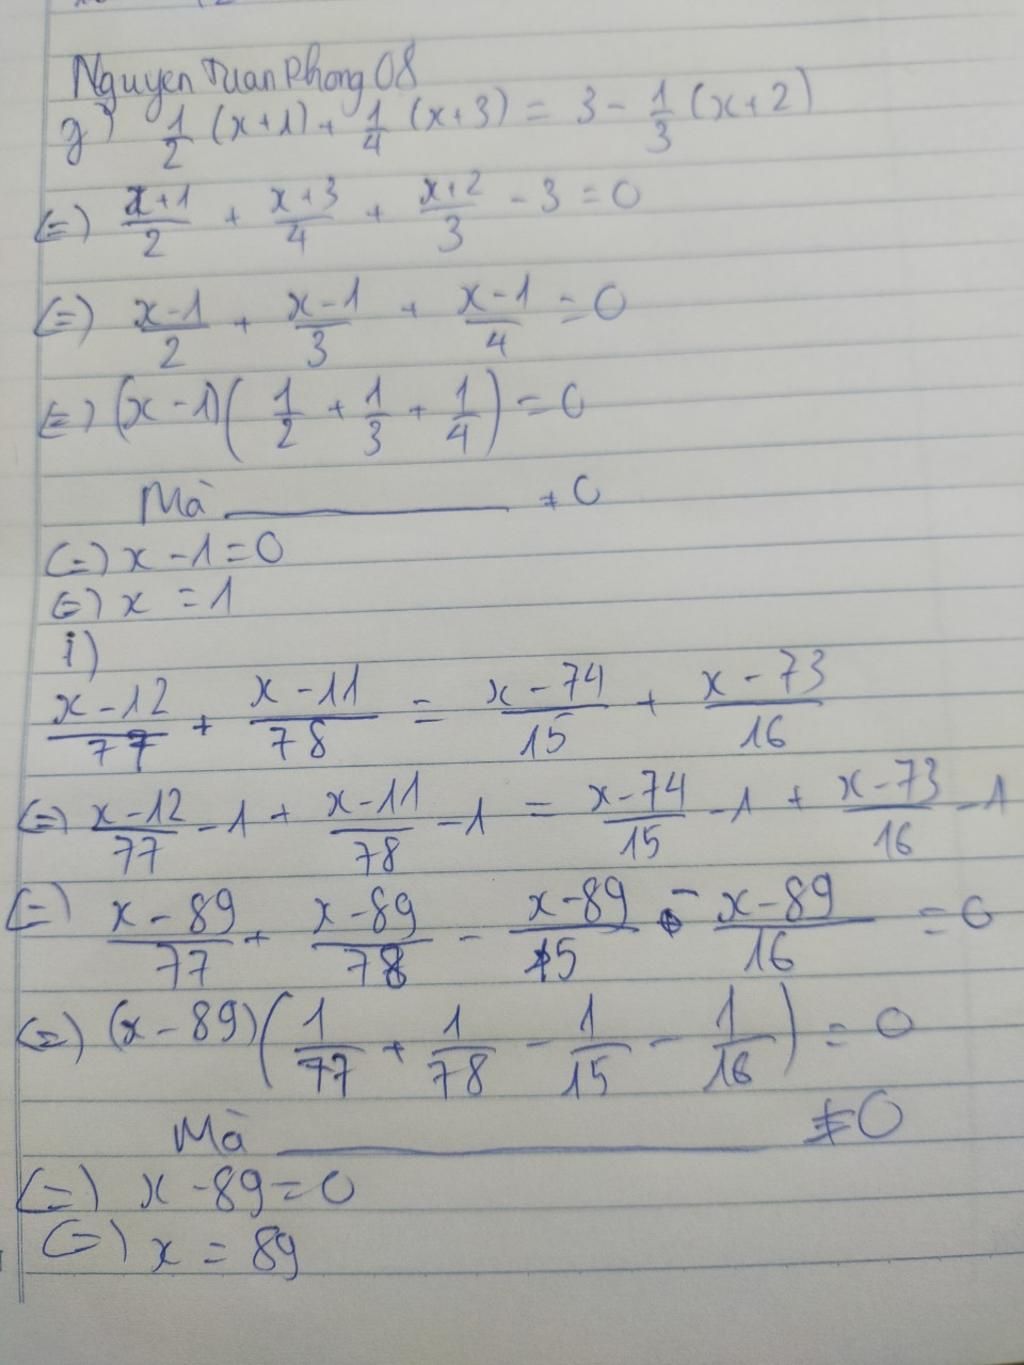 Nguyen Tuan Phong 08
g) 1/2 (x+1) + 1/4 (x+3) = 3 - 1/3 (x+2)
(=) x+1/2 + x+3/4 + x+2/3 - 3 = 0
(=) x-1/2 + x-1/3 + x-1/4 = 0
(=) (x-1)(1/2 + 1/3 + 1/4) = 0
Mà ≠ 0
(=) x - 1 = 0
(=) x = 1
i)
x-12/77 + x-11/78 = x-74/15 + x-73/16
(=) x-12/77 - 1 + x-11/78 - 1 = x-74/15 - 1 + x-73/16 - 1
(=) x-89/77 + x-89/78 - x-89/15 - x-89/16 = 0
(=) (x-89)(1/77 + 1/78 - 1/15 - 1/16) = 0
Mà ≠ 0
(=) x - 89 = 0
(=) x = 89